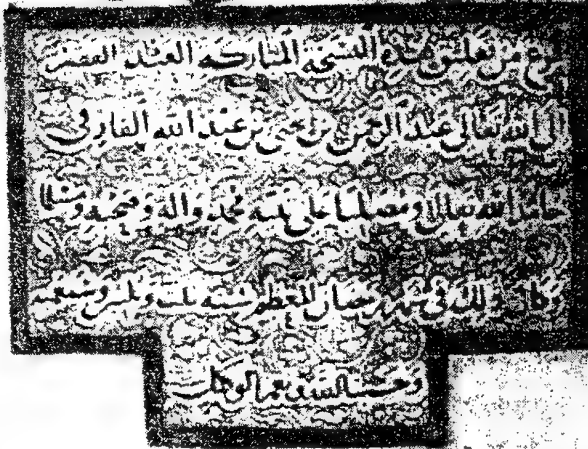 فرغ من تعليق هذه النسخة المباركه العبد الفقير
الى الله تعالى عبد الرحمن بن يحيى بن عبد الله الفارقي
حامدا لله تعالى ومصليا على نبيه محمد واله وصحبه ومسلما
وذلك في شهر رمضان المعظم سنة ثلث وثلثين وسبعمه
وحسبنا الله ونعم الوكيل